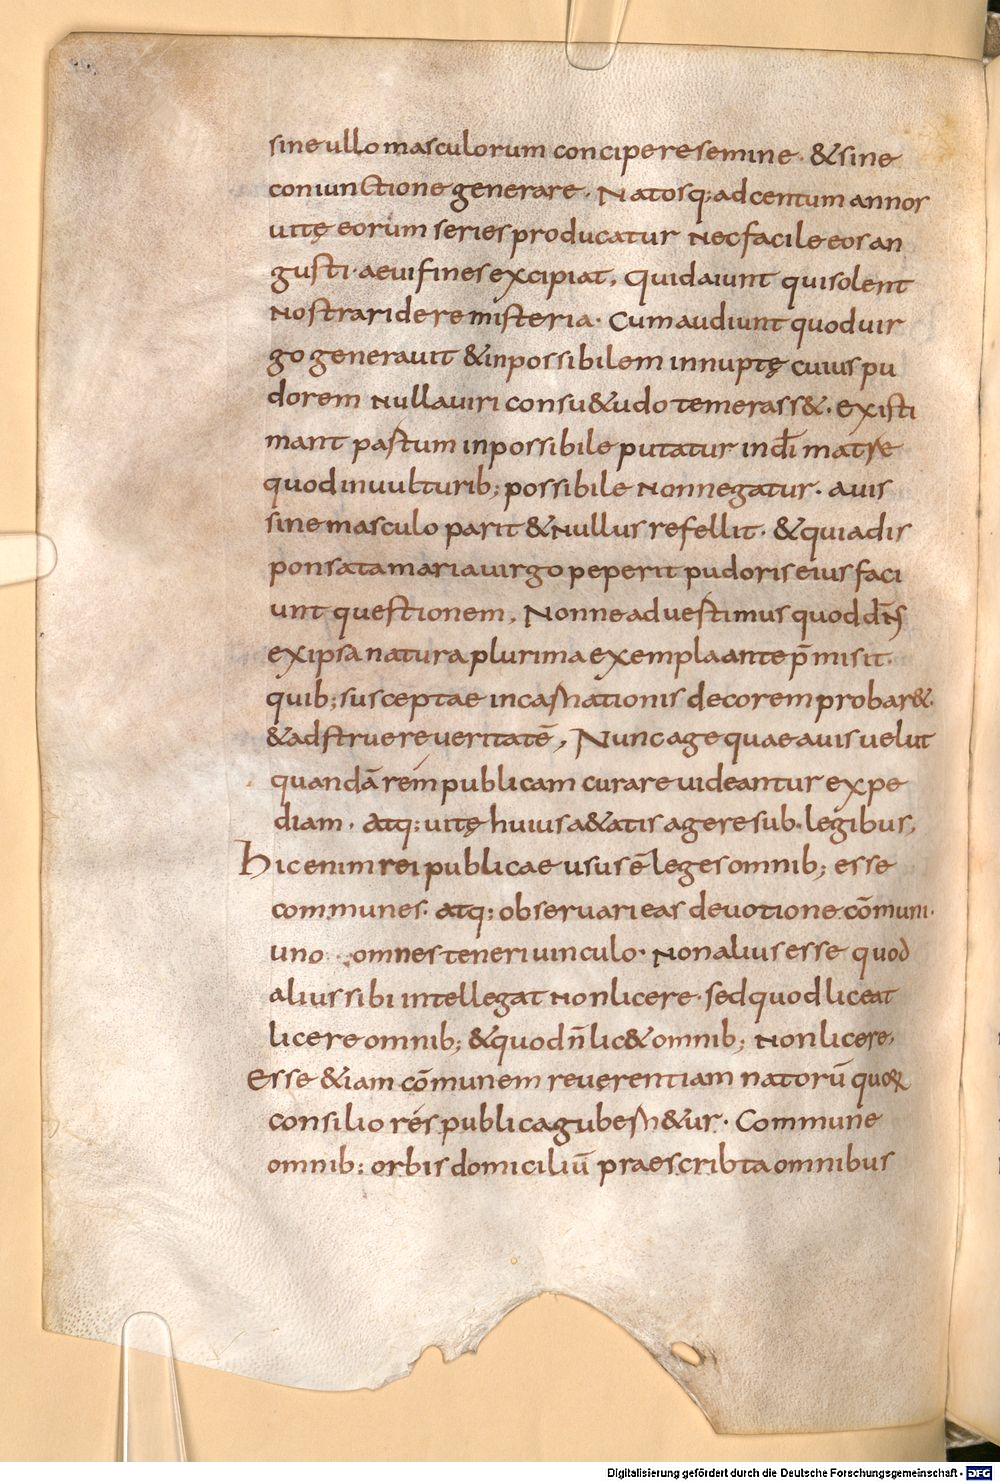 sine ullo masculorum concipere semine · & sine
coniunctione generare · Natosq; ad centum annos
uitę eorum series producatur Nec facile eos an
gusti · aeui fines excipiat, Quid aiunt qui solent
nostra ridere misteria · Cum audiunt quod uir
go generauit & inpossibilem innuptę cuius pu
dorem nulla uiri consu&udo temerass& · existi
mant partum inpossibile putatur in dī matre
quod in uulturib; possibile non negatur · auis
sine masculo parit & nullus refellit · & quia dis
ponsata maria uirgo peperit pudoris eius faci
unt questionem, Nonne aduestimus quod dn̄s
ex ipsa natura plurima exempla ante p̄misit ·
quib; susceptae incarnationis decorem probar& ·
& adstruere ueritatē, Nunc age quae auis uelut
quandā rem publicam curare uideantur expe
diam · atq; uitę huius a&atis agere sub legibus,
Hic enim rei publicae usus ē leges omnib; esse
communes · atq; obseruari eas deuotione cōmuni ·
uno omnes teneri uinculo · Non alius esse quod
alius sibi intellegat non licere · sed quod liceat
licere omnib; & quod n̄ lic& omnib; Non licere,
Esse &iam cōmunem reuerentiam natorū quorum
consilio res publica gubern&ur · Commune
omnib; orbis domiciliū praescribta omnibus
Digitalisierung gefördert durch die Deutsche Forschungsgemeinschaft - DFG